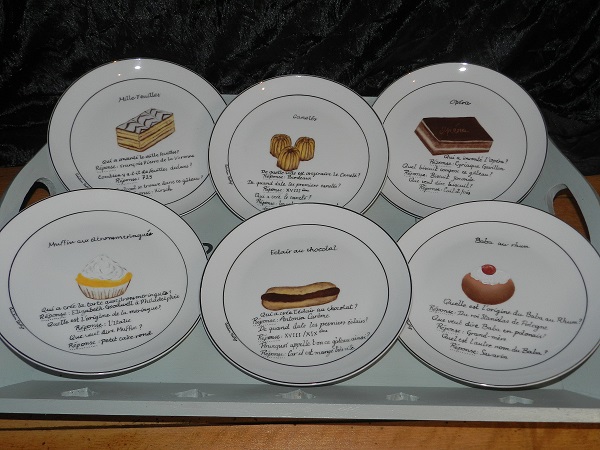 Mille-Feuilles
Qui a inventé le mille feuilles?
Réponse: François Pierre de la Varenne
Combien y a-t-il de feuilles dedans?
Réponse: 729
trouve dans ce gâteau?
Réponse: Kirsch
Canelés
De quelle ville est originaire le Canelé?
Réponse: Bordeaux
De quand date les premiers canelés?
Réponse: XVIII ème
Qui a créé le canelé?
Opéra
Qui a inventé l'opéra?
Réponse: Cyriaque Gavillon
Quel biscuit compose ce gâteau?
Réponse: Biscuit Joconde
Que veut dire biscuit?
Réponse: Cuit 2 fois
Muffin aux citrons meringués
Qui a créé la tarte aux citrons meringués?
Réponse: Elizabeth Goodwell à Philadelphie
Quelle est l'origine de la meringue?
Réponse: L'Italie
Que veut dire Muffin?
Réponse: petit cake rond
Eclair au chocolat
Qui a créé l'éclair au chocolat?
Réponse: Antonin Carême
De quand date les premiers éclairs?
Réponse: XVIII/XIX ème
Pourquoi appelle t-on ce gâteau ainsi?
Réponse: Car il est mangé très vite
Baba au rhum
Quelle est l'origine du Baba au Rhum?
Réponse: Du roi Stanislas de Pologne
Que veut dire Baba en polonais?
Réponse: Grand-mère
Quel est l'autre nom du Baba?
Réponse: Savarin